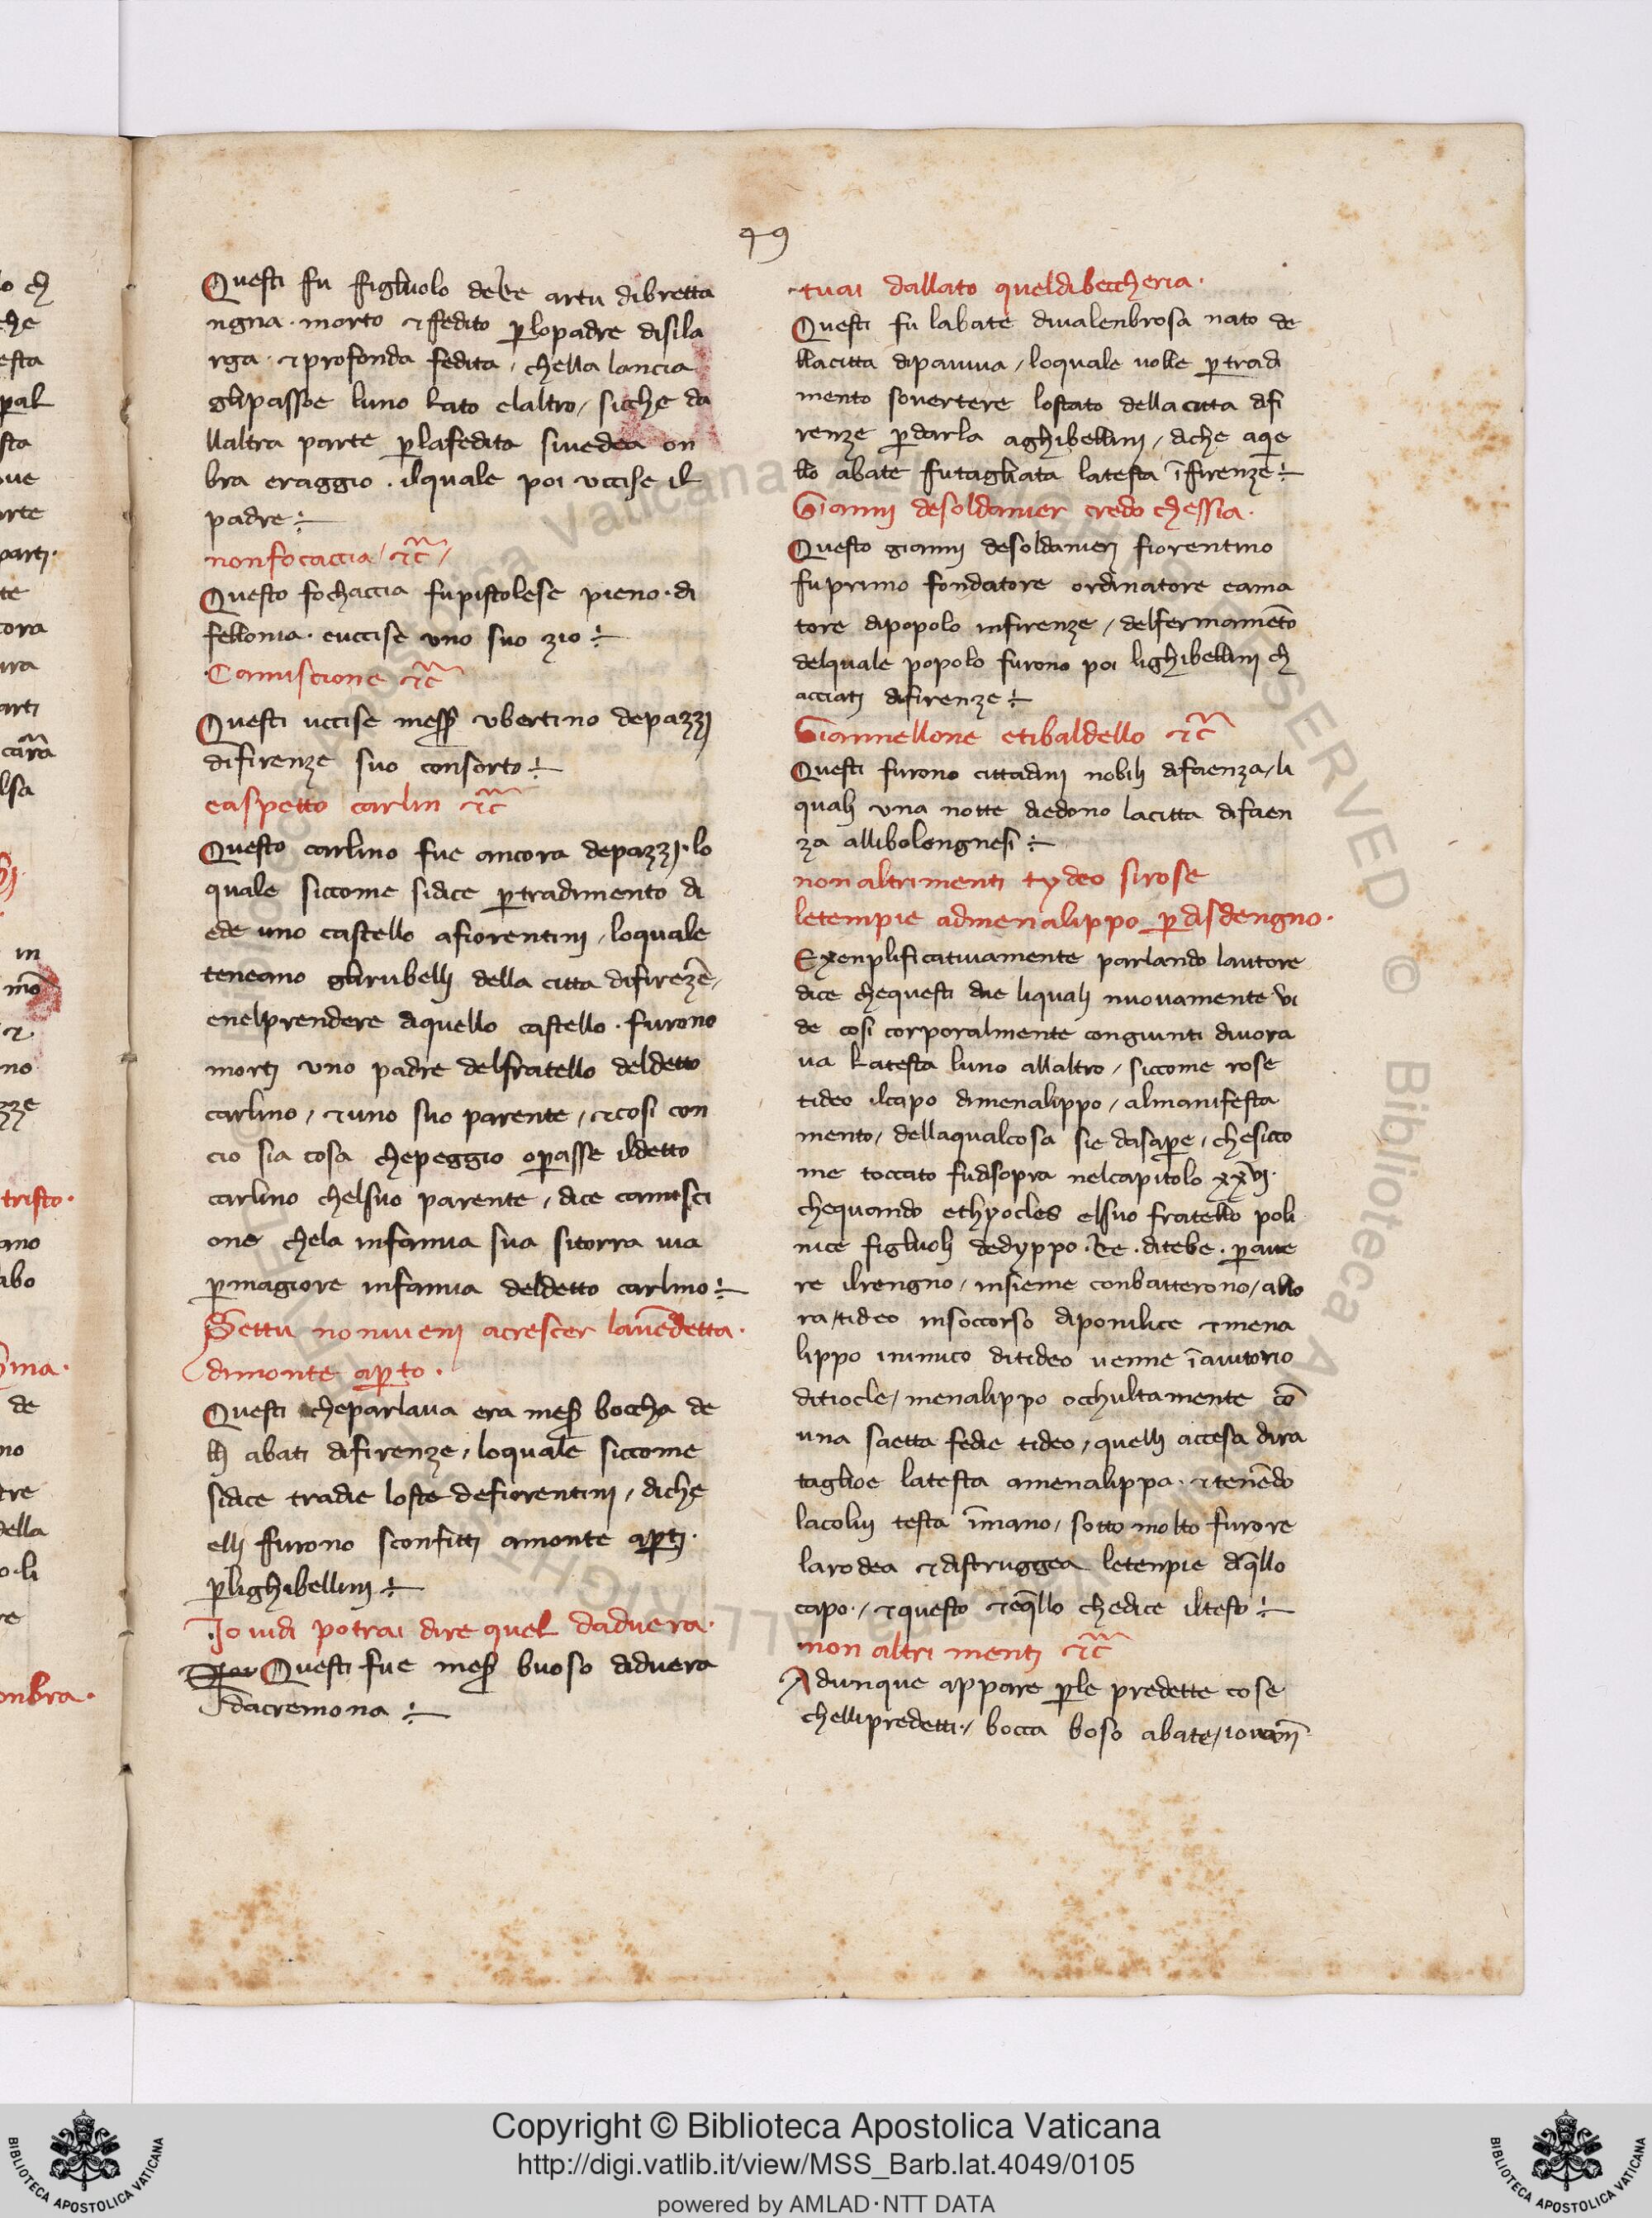 99
Questi fu figliuolo de re artu dibretta
ngna · morto ⁊ ffedito ꝑlopadre disila
rga · ⁊ profonda fedita / chella lancia
glipassoe luno lato elaltro / sicche da
llaltra parte ꝑlafedita siuedea on
bra eraggio · ilquale poi uccise il
padre ÷
nonfocaccia / ⁊c̃ /
Questo fochaccia fupistolese pieno · di
fellonia · euccise uno suo zio ÷
Camiscione ⁊c̃
Questi uccise mess̃ ubertino depazzi
difirenze suo consorto ÷
easpetto carlin ⁊c̃
Questo carlino fue ancora depazzi · lo
quale siccome sidice ꝑtradimento di
ede uno castello afiorentini / loquale
teneano glirubelli della citta difirezẽ /
enelprendere diquello castello · furono
morti uno padre delfratello deldetto
carlino / ⁊uno suo parente / ⁊cosi con
cio sia cosa chepeggio oꝑasse ildetto
carlino chelsuo parente / dice camisci
one chela infamia sua sitorra uia
ꝑmagiore infamia deldetto carlino ÷
Settu nonuieni acrescer lauẽdetta ·
dimonte aꝑto ·
Questi cheparlaua era mes̃ boccha de
lli abati difirenze / loquale siccome
sidice tradie loste defiorentini / diche
elli ffurono sconfitti amonte aꝑti ·
ꝑlighibellini ÷
Jo uidi potrai dire quel daduera ·
Questi fue mes̃ buoso diduera
dacremona ÷
tuai dallato queldibeccheria ·
Questi fu labate diualenbrosa nato de
llacitta dipauiua / loquale uolle ꝑtradi
mento souertere lostato della citta difi
renze ꝑdarla aghibellini / diche aq̃e
llo abate futagliata latesta ĩfirenze ÷
Gianni desoldanier credo chessia ·
Questo gianni desoldanieri fiorentino
fuprimo fondatore ordinatore eama
tore dipopolo infirenze / delfermamẽto
delquale popolo furono poi lighibellini ch
acciati difirenze ÷
Giannellone etibaldello ⁊c̃
Questi furono cittadini nobili difaenza / li
quali una notte diedono lacitta difaen
za allibolongnesi ÷
non altrimenti tydeo sirose
letempie admenalippo ꝑdisdengno ·
Exenplificatiuamente parlando lautore
dice chequesti due liquali nuouamente ui
de cosi corporalmente congiunti diuora
ua latesta luno allaltro / siccome rose
tideo ilcapo dimenalippo / almanifesta
mento / dellaqualcosa sie dasaꝑe / chesicco
me toccato fudisopra nelcapitolo xxvi ·
chequando ethyocles elsuo fratello poli
nice figliuoli dedyppo · Re · ditebe · ꝑaue
re ilrengno / insieme conbatterono / allo
ra / tideo insoccorso diponilice ⁊mena
lippo inimico ditideo uenne ĩaiutorio
ditiocle / menalippo occhultamente cõ
una saetta fedie tideo / quelli accesa dira
taglioe latesta amenalippa · ⁊tenẽdo
lacolui testa ĩmano / sotto molto furore
larodea ⁊distruggea letenpie diq̃llo
capo · / ⁊questo ⁊eq̃llo chedice iltesto ÷
non altri menti ⁊c̃
Adunque appare ꝑle predette cose
chellipredetti · / bocca boso abate / iouanñ
Copyright © Biblioteca Apostolica Vaticana
http://digi.vatlib.it/view/MSS_Barb.lat.4049/0105
powered by AMLAD·NTT DATA
BIBLIOTECA APOSTOLICA VATICANA
BIBLIOTECA APOSTOLICA VATICANA